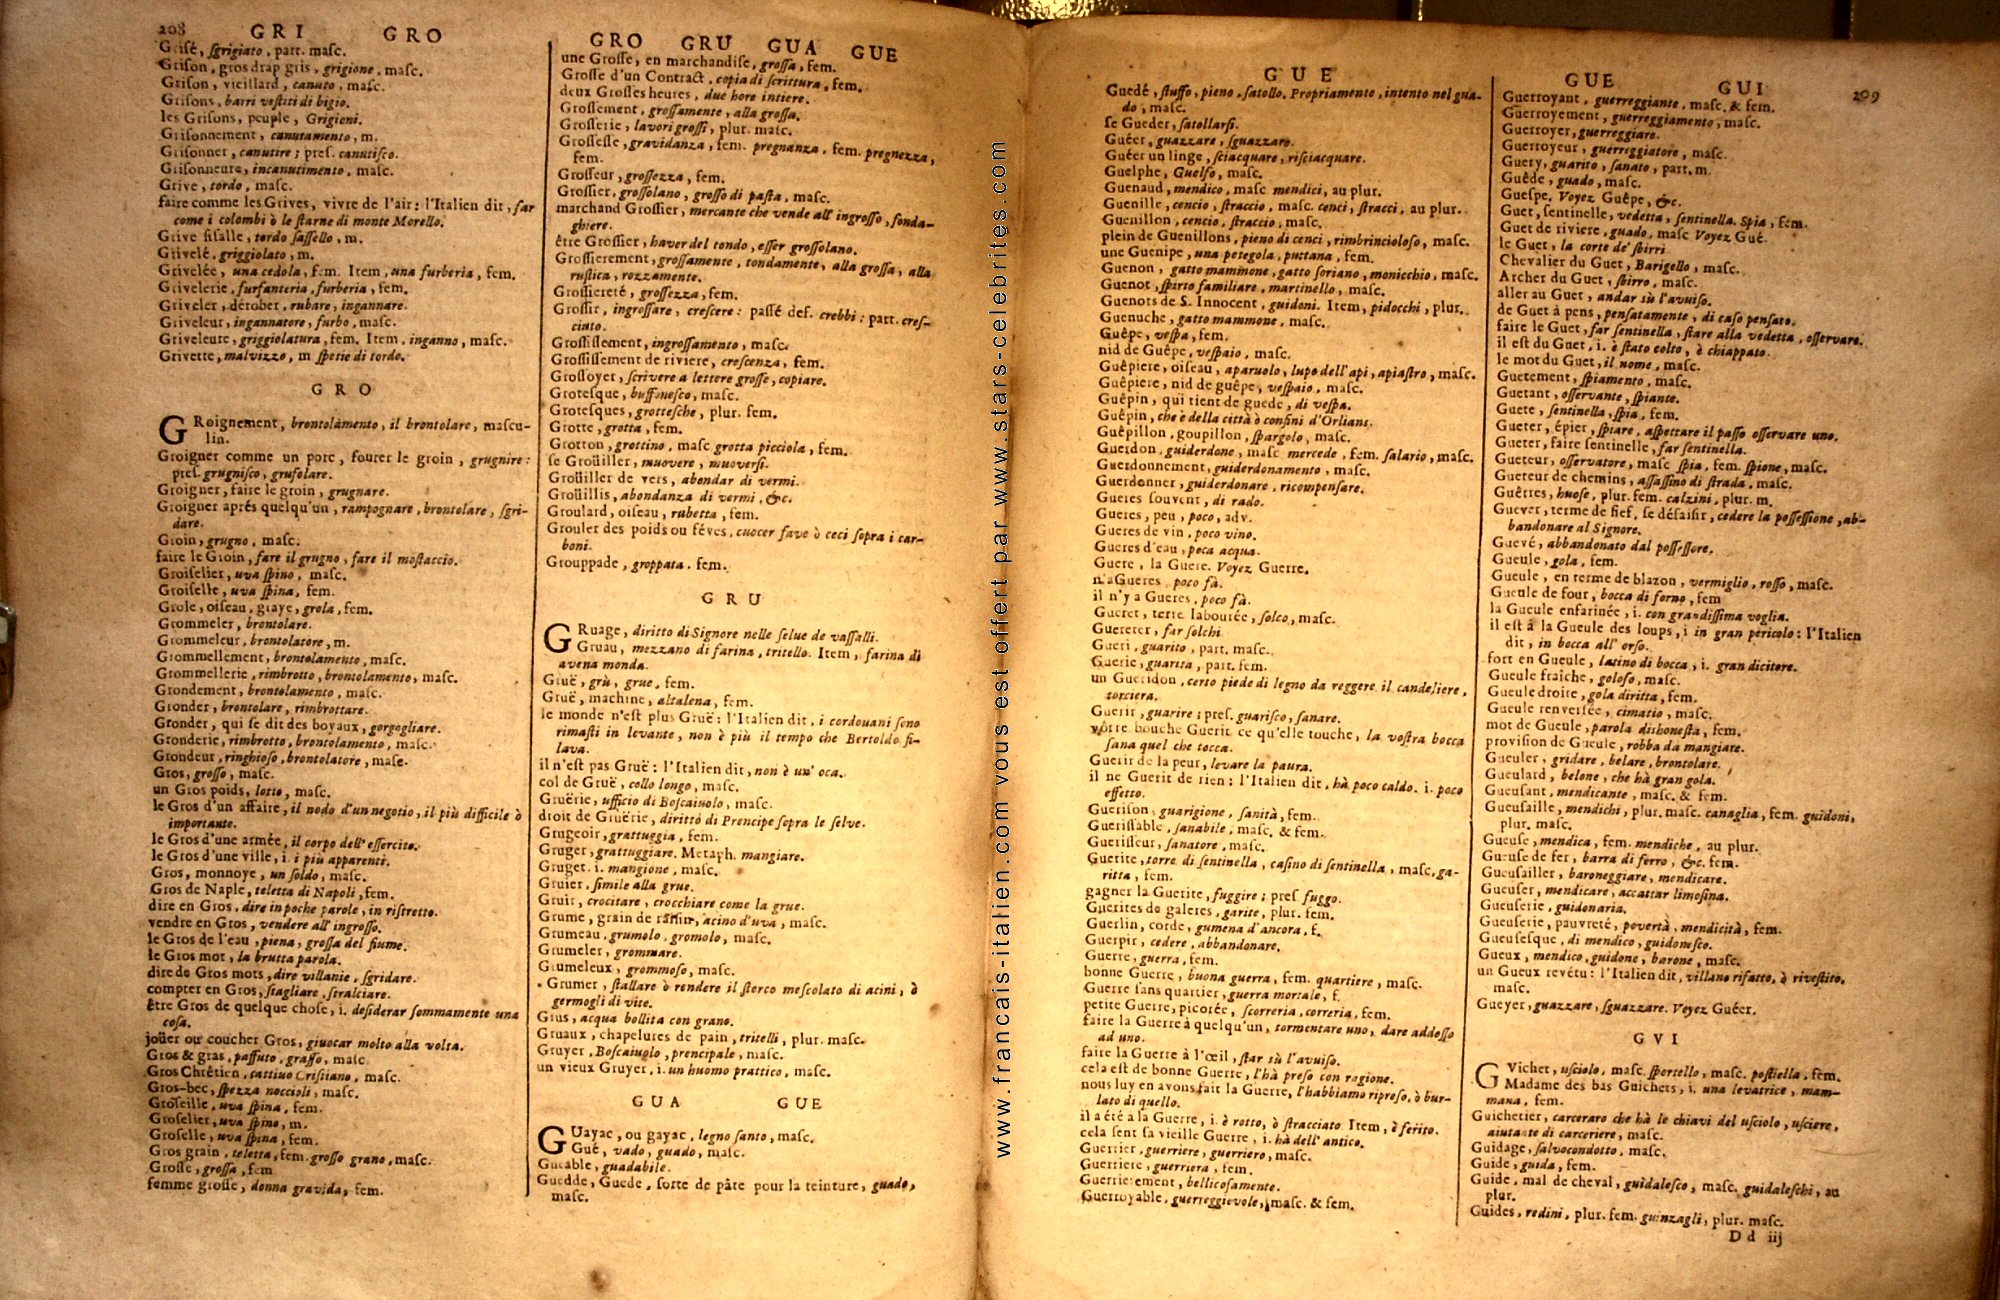 208 GRI GRO
Grisé, sgrigiato, part. masc.
Grison, gros drap gris, grigione, masc.
Grison, vieillard, canuto, masc.
Grisons, barri vestiti di bigio.
les Grisons, peuple, Grigioni.
Grisonnement, canutamento, m.
Grisonner, canutire; pres. canutisco.
Grisonneure, incanutimento, masc.
Grive, tordo, masc.
faire comme les Grives, vivre de l'air: l'Italien dit, far
come i colombi ò le starne di monte Morello.
Grive sisalle, tordo sassello, m.
Grivelé, griggiolato, m.
Grivelée, una cedola, fem. Item, una furberia, fem.
Grivelerie, furfanteria, furberia, fem.
Griveler, dérober, rubare, ingannare.
Griveleur, ingannatore, furbo, masc.
Griveleure, griggiolatura, fem. Item, inganno, masc.
Grivette, malvizzo, m spetie di tordo.
GRO
GRoignement, brontolamento, il brontolare, mascu-
lin.
Groigner comme un porc, fourer le groin, grugnire:
pres. grugnisco, grufolare.
Groigner, faire le groin, grugnare.
Groigner aprés quelqu'un, rampognare, brontolare, sgri-
dare.
Groin, grugno, masc.
faire le Groin, fare il grugno, fare il mostaccio.
Groiselier, uva spino, masc.
Groiselle, uva spina, fem.
Grole, oiseau, graye, grola, fem.
Grommeler, brontolare.
Grommeleur, brontolatore, m.
Grommellement, brontolamento, masc.
Grommellerie, rimbrotto, brontolamento, masc.
Grondement, brontolamento, masc.
Gronder, brontolare, rimbrottare.
Gronder, qui se dit des boyaux, gorgogliare.
Gronderie, rimbrotto, brontolamento, masc.
Grondeur, ringhioso, brontolatore, masc.
Gros, grosso, masc.
un Gros poids, lotto, masc.
le Gros d'un affaire, il nodo d'un negotio, il più difficile ò
importante.
le Gros d'une armée, il corpo dell'essercito.
le Gros d'une ville, i. i più apparenti.
Gros, monnoye, un soldo, masc.
Gros de Naple, teletta di Napoli, fem.
dire en Gros, dire in poche parole, in ristretto.
vendre en Gros, vendere all'ingrosso.
le Gros de l'eau, piena, grossa del fiume.
le Gros mot, la brutta parola.
dire de Gros mots, dire villanie, sgridare.
compter en Gros, stagliare, stralciare.
être Gros de quelque chose, i. desiderar sommamente una
cosa.
joüer ou coucher Gros, giuocar molto alla volta.
Gros & gras, passuto, grasso, masc
Gros Chrêtien, cattivo Cristiano, masc.
Gros-bec, spezza noccioli, masc.
Groseille, uva spina, fem.
Groselier, uva spino, m.
Groselle, uva spina, fem.
Gros grain, teletta, fem. grosso grano, masc.
Grosse, grossa, fem
femme grosse, donna gravida, fem.
GRO GRU GUA GUE
une Grosse, en marchandise, grossa, fem.
Grosse d'un Contract, copia di scrittura, fem.
deux Grosses heures, due hore intiere.
Grossement, grossamente, alla grossa.
Grosserie, lavori grossi, plur. masc.
Grossesse, gravidanza, fem. pregnanza, fem. pregnezza,
fem.
Grosseur, grossezza, fem.
Grossier, grossolano, grosso di pasta, masc.
marchand Grossier, mercante che vende all'ingrosso, fonda-
ghiere.
être Grossier, haver del tondo, esser grossolano.
Grossierement, grossamente, tondamente, alla grossa, alla
rustica, rozzamente.
Grossiereté, grossezza, fem.
Grossir, ingrossare, crescere: passé def. crebbi: part. cres-
ciuto.
Grossissement, ingrossamento, masc.
Grossissement de riviere, crescenza, fem.
Grossoyer, scrivere a lettere grosse, copiare.
Grotesque, buffonesco, masc.
Grotesques, grottesche, plur. fem.
Grotte, grotta, fem.
Grotton, grottino, masc grotta picciola, fem.
se Groüiller, muovere, muoversi.
Groüiller de vers, abondar di vermi.
Groüillis, abondanza di vermi, &c.
Groulard, oiseau, rubetta, fem.
Grouler des poids ou féves, cuocer fave ò ceci sopra i car-
boni.
Grouppade, groppata. fem.
GRU
GRuage, diritto di Signore nelle selve de vassalli.
Gruau, mezzano di farina, tritello. Item, farina di
avena monda.
Gruë, grù, grue, fem.
Gruë, machine, altalena, fem.
le monde n'est plus Gruë: l'Italien dit, i cordouani sono
rimasti in levante, non è più il tempo che Bertoldo fi-
lava.
il n'est pas Gruë: l'Italien dit, non è un'oca.
col de Gruë, collo longo, masc.
Gruërie, ufficio di Boscaiuolo, masc.
droit de Gruërie, diritto di Prencipe sopra le selve.
Grugeoir, grattuggia, fem.
Gruger, grattuggiare. Metaph. mangiare.
Gruget. i. mangione, masc.
Gruier, simile alla grue.
Gruir, crocitare, crocchiare come la grue.
Grume, grain de raisin, acino d'uva, masc.
Grumeau, grumolo, gromolo, masc.
Grumeler, grommare.
Grumeleux, grommoso, masc.
Grumer, stallare ò rendere il sterco mescolato di acini, ò
germogli di vite.
Grus, acqua bollita con grano.
Gruaux, chapelures de pain, tritelli, plur. masc.
Gruyer, Boscaiuolo, prencipale, masc.
un vieux Gruyer, i. un huomo prattico, masc.
GUA GUE
GUayac, ou gayac, legno santo, masc.
Gué, vado, guado, masc.
Gueable, guadabile.
Guedde, Guede, sorte de pâte pour la teinture, guado,
masc.
www.francais-italien.com vous est offert par www.stars-celebrites.com
GUE
Guedé, stuffo, pieno, satollo. Propriamente, intento nel gua-
do, masc.
se Gueder, satollarsi.
Guéer, guazzare, sguazzare.
Guéer un linge, sciacquare, risciacquare.
Guelphe, Guelfo, masc.
Guenaud, mendico, masc mendici, au plur.
Guenille, cencio, straccio, masc. cenci, stracci, au plur.
Guenillon, cencio, straccio, masc.
plein de Guenillons, pieno di cenci, rimbrincioloso, masc.
une Guenipe, una petegola, puttana, fem.
Guenon, gatto mammone, gatto soriano, monicchio, masc.
Guenot, spirto familiare, martinello, masc.
Guenots de S. Innocent, guidoni. Item, pidocchi, plur.
Guenuche, gatto mammone, masc.
Guêpe, vespa, fem.
nid de Guêpe, vespaio, masc.
Guêpiere, oiseau, aparuolo, lupo dell'api, apiastro, masc.
Guêpiere, nid de guêpe, vespaio, masc.
Guêpin, qui tient de guede, di vespa.
Guêpin, che è della città ò confini d'Orlians.
Guêpillon, goupillon, spargolo, masc.
Guerdon, guiderdone, masc mercede, fem. salario, masc.
Guerdonnement, guiderdonamento, masc.
Guerdonner, guiderdonare, ricompensare.
Gueres souvent, di rado.
Gueres, peu, poco, adv.
Gueres de vin, poco vino.
Gueres d'eau, poca acqua.
Guere, la Guere. Voyez Guerre.
n'a Gueres, poco fà.
il n'y a Gueres, poco fà.
Gueret, terre labourée, solco, masc.
Guereter, far solchi
Gueri, guarito, part. masc.
Guerie, guarita, part. fem.
un Gueridon, certo piede di legno da reggere il candeliere,
torciera.
Guerir, guarire; pres. guarisco, sanare.
vôtre bouche Guerit ce qu'elle touche, la vostra bocca
sana quel che tocca.
Guerir de la peur, levare la paura.
il ne Guerit de rien: l'Italien dit, hà poco caldo. i. poco
effetto.
Guerison, guarigione, sanità, fem.
Guerissable, sanabile, masc. & fem.
Guerisseur, sanatore, masc.
Guerite, torre di sentinella, casino di sentinella, masc. ga-
ritta, fem.
gagner la Guerite, fuggire; pres fuggo.
Guerites de galeres, garite, plur. fem.
Guerlin, corde, gumena d'ancora, f.
Guerpir, cedere, abbandonare.
Guerre, guerra, fem.
bonne Guerre, buona guerra, fem. quartiere, masc.
Guerre sans quartier, guerra mortale, f.
petite Guerre, picorée, scorreria, correria, fem.
faire la Guerre à quelqu'un, tormentare uno, dare addosso
ad uno.
faire la Guerre à l'œil, star sù l'avuiso.
cela est de bonne Guerre, l'hà preso con ragione.
nous luy en avons fait la Guerre, l'habbiamo ripreso, ò bur-
lato di quello.
il a été à la Guerre, i. è rotto, ò stracciato. Item, è ferito.
cela sent sa vieille Guerre, i. hà dell'antico.
Guerrier, guerriere, guerriero, masc.
Guerriere, guerriera, fem.
Guerrierement, bellicosamente.
Guerroyable, guerreggievole, masc. & fem.
GUE GUI 209
Guerroyant, guerreggiante, masc. & fem.
Guerroyement, guerreggiamento, masc.
Guerroyer, guerreggiare.
Guerroyeur, guerreggiatore, masc.
Guery, guarito, sanato, part. m.
Guêde, guado, masc.
Guespe. Voyez Guêpe, &c.
Guet, sentinelle, vedetta, sentinella. Spia, fem.
Guet de riviere, guado, masc Voyez Gué.
le Guet, la corte de' sbirri
Chevalier du Guet, Barigello, masc.
Archer du Guet, sbirro, masc.
aller au Guet, andar sù l'avuiso.
de Guet à pens, pensatamente, di caso pensato.
faire le Guet, far sentinella, stare alla vedetta, osservare.
il est du Guet, i. è stato colto, è chiappato.
le mot du Guet, il nome, masc.
Guetement, spiamento, masc.
Guetant, osservante, spiante.
Guete, sentinella, spia, fem.
Gueter, épier, spiare, aspettare il passo osservare uno.
Gueter, faire sentinelle, far sentinella.
Gueteur, osservatore, masc spia, fem. spione, masc.
Gueteur de chemins, assassino di strada, masc.
Guêtres, huose, plur. fem. calzini, plur. m.
Guever, terme de fief, se désaisir, cedere la possessione, ab-
bandonare al Signore.
Guevé, abbandonato dal possessore.
Gueule, gola, fem.
Gueule, en terme de blazon, vermiglio, rosso, masc.
Gueule de four, bocca di forno, fem
la Gueule enfarinée, i. con grandissima voglia.
il est à la Gueule des loups, i in gran pericolo: l'Italien
dit, in bocca all'orso.
fort en Gueule, latino di bocca, i. gran dicitore.
Gueule fraîche, goloso, masc.
Gueule droite, gola diritta, fem.
Gueule renversée, cimatio, masc.
mot de Gueule, parola dishonesta, fem.
provision de Gueule, robba da mangiare.
Gueuler, gridare, belare, brontolare.
Gueulard, belone, che hà gran gola.
Gueusant, mendicante, masc. & fem.
Gueusaille, mendichi, plur. masc. canaglia, fem. guidoni,
plur. masc.
Gueuse, mendica, fem. mendiche, au plur.
Gueuse de fer, barra di ferro, &c. fem.
Gueusailler, baroneggiare, mendicare.
Gueuser, mendicare, accattar limosina.
Gueuserie, guidonaria.
Gueuserie, pauvreté, povertà, mendicità, fem.
Gueusesque, di mendico, guidonesco.
Gueux, mendico, guidone, barone, masc.
un Gueux revétu: l'Italien dit, villano rifatto, ò rivestito,
masc.
Gueyer, guazzare, sguazzare. Voyez Guéer.
GVI
GVichet, usciolo, masc. sportello, masc. postiella, fem.
Madame des bas Guichets, i. una levatrice, mam-
mana, fem.
Guichetier, carceraro che hà le chiavi del usciolo, usciere,
aiutante di carceriere, masc.
Guidage, salvocondotto, masc.
Guide, guida, fem.
Guide, mal de cheval, guidalesco, masc. guidaleschi, au
plur.
Guides, redini, plur. fem. guinzagli, plur. masc.
D d iij